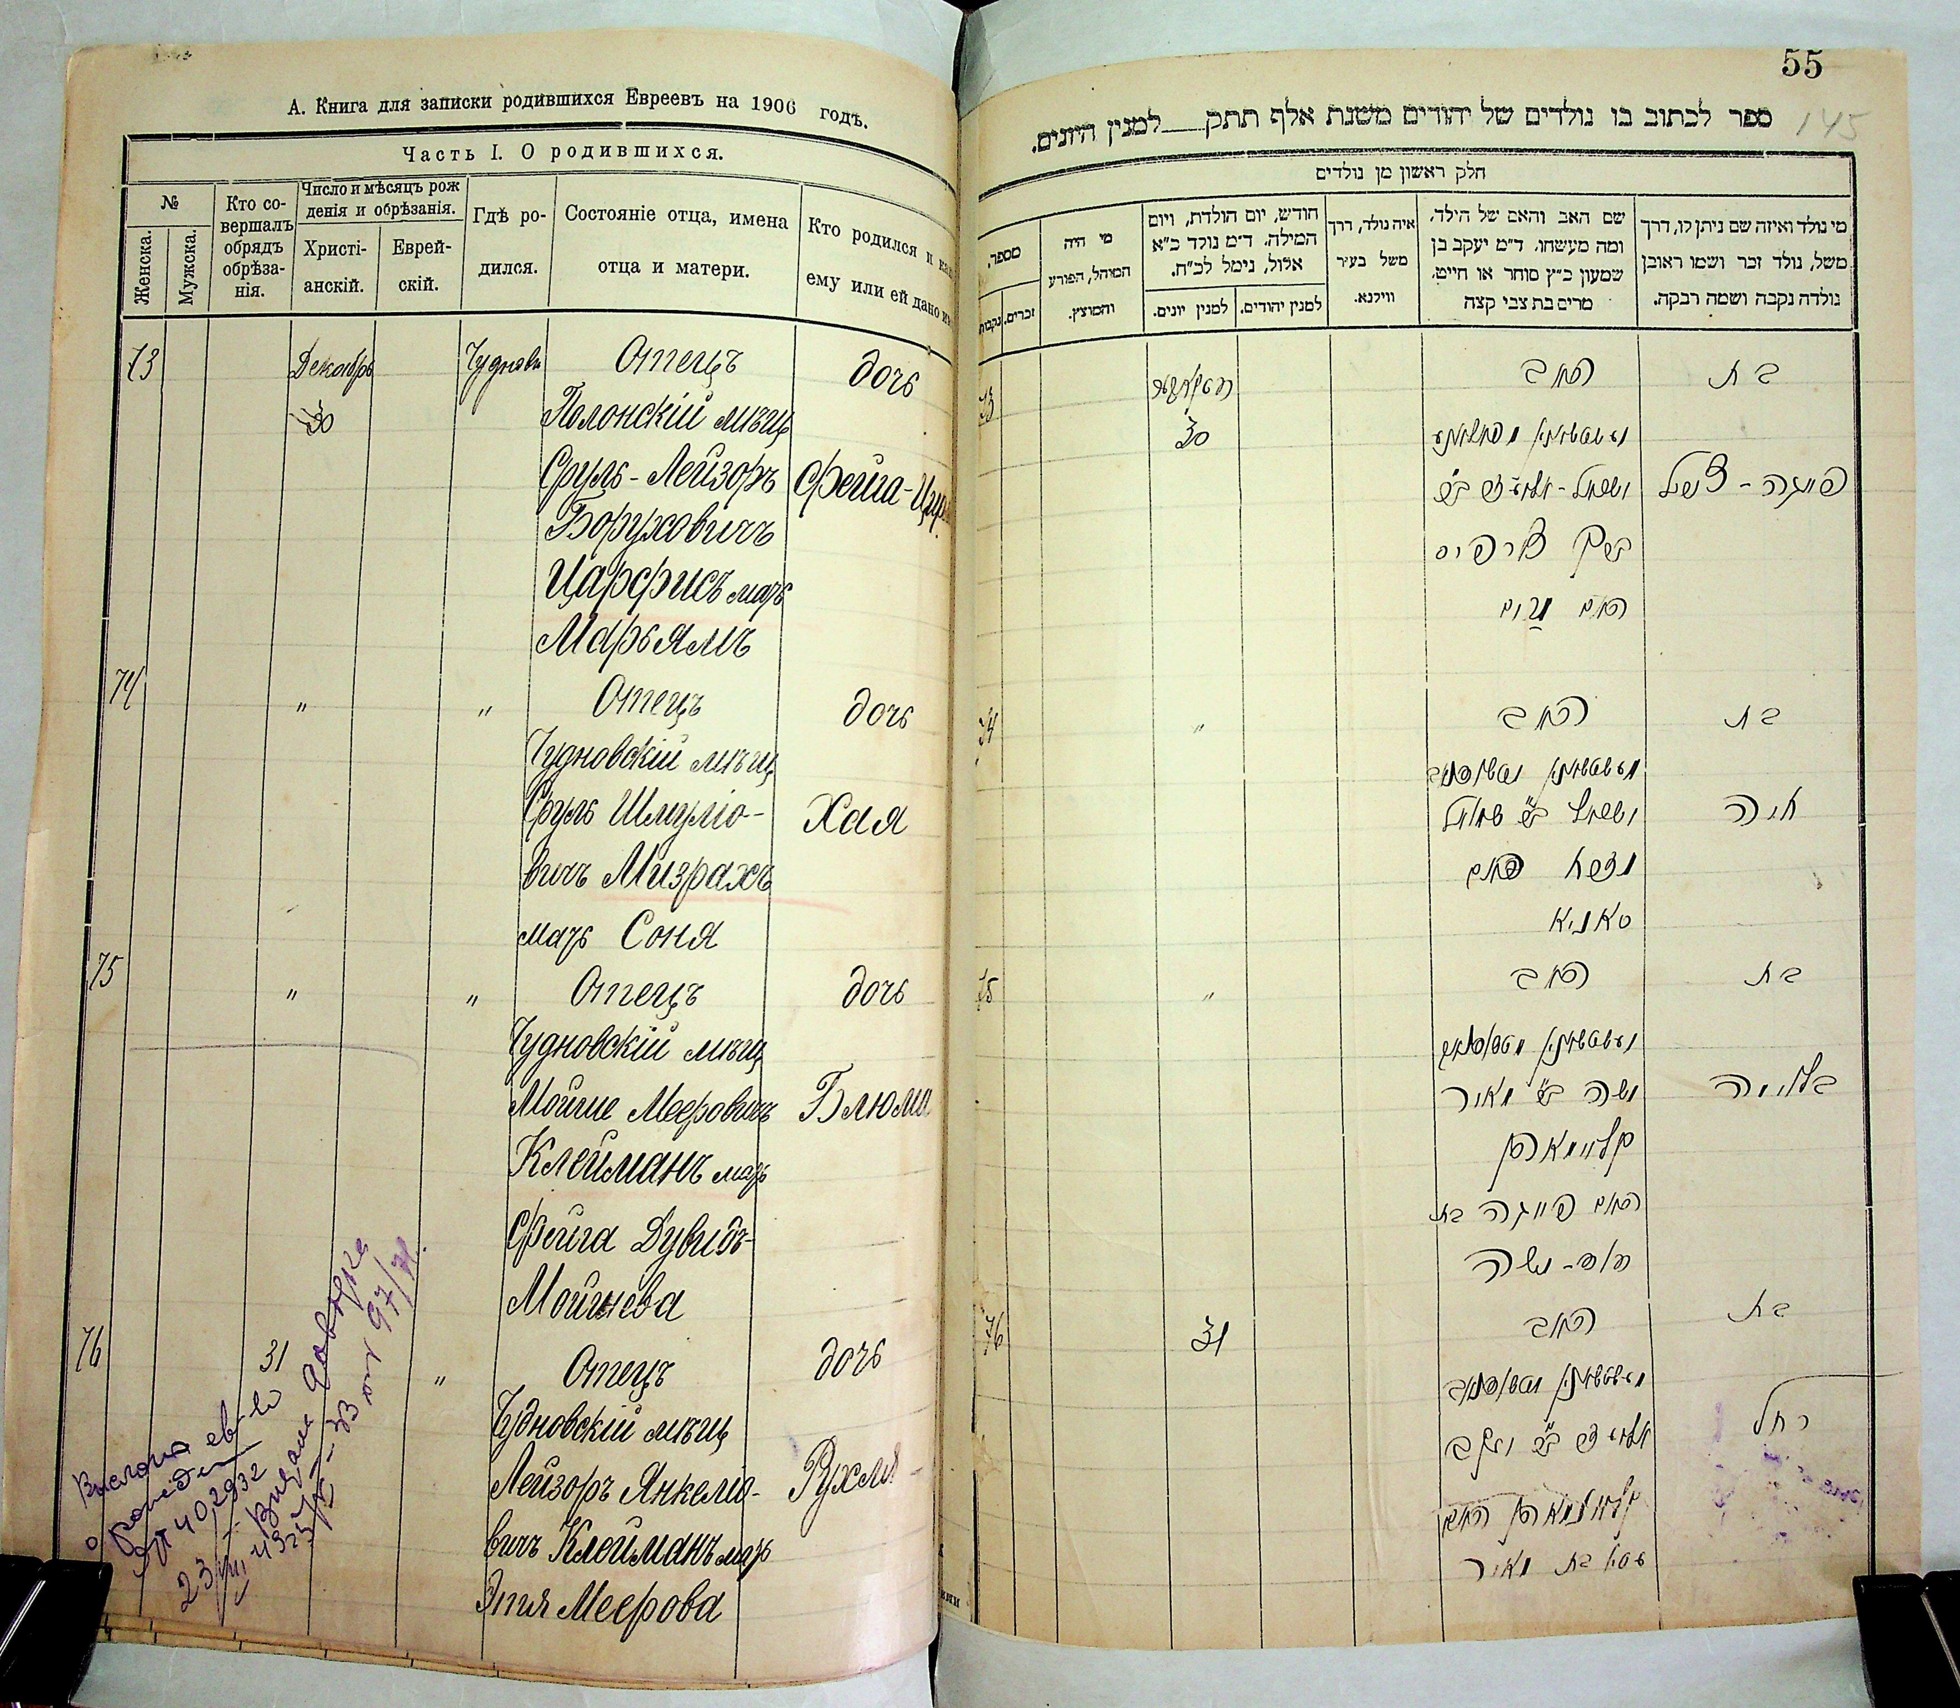 А. Книга для записки родившихся Евреевъ на 1906 годъ.
Часть I. О родившихся.
№
Женска.
Мужска.
Кто со-
вершалъ
обрядъ
обрѣза-
нія.
Число и мѣсяцъ рож
денія и обрѣзанія.
Христі-
анскій.
Еврей-
скій.
Гдѣ ро-
дился.
Состояніе отца, имена
отца и матери.
Кто родился и
ему или ей дано
73
Декабрь
30
Чудновъ
Отецъ
дочь
Полонскій мѣщ
Сруль-Лейзоръ
Фейга-
Боруховичъ
Царфисъ мать
Марьямъ
74
"
"
Отецъ
дочь
Чудновскій мѣщ
Сруль Шмуліо-
Хая
вичъ Мизрахъ
мать Соня
75
"
"
Отецъ
дочь
Чудновскій мѣщ
Мойше Мееровичъ
Блюма
Клейманъ мать
Фейга Дувидъ-
Мойшева
76
31
"
Отецъ
дочь
Чудновскій мѣщ
Лейзоръ Янкеліо-
Рухля
вичъ Клейманъ мать
Этя Меерова
55
145
ספר לכתוב בו נולדים של יהודים משנת אלף תתק למנין היונים.
חלק ראשון מן נולדים
מספר.
נקבות
זכרים.
מי היה
המוהל, הפורע
והמוצץ.
חודש, יום הולדת, ויום
המילה. ד״מ נולד כ״א
אלול, נימל לכ״ח.
למנין יונים.
למנין יהודים.
איה נולד, דרך
משל בעיר
ווילנא.
שם האב והאם של הילד,
ומה מעשהו. ד״מ יעקב בן
שמעון כ״ץ סוחר או חייט,
מרים בת צבי קצה
מי נולד ואיזה שם ניתן לו, דרך
משל, נולד זכר ושמו ראובן
נולדה נקבה ושמה רבקה.
73
דעקאבר
30
האב
בת
פייגה-
צרפיס
האם מרים
74
"
האב
בת
ישראל ב״ר שמואל
חיה
מזרח האם
סאניא
75
"
האב
בת
משה ב״ר מאיר
בלומה
קליימאן
האם פייגה בת
דוד-משה
76
31
האב
בת
אליעזר ב״ר יעקב
רחל
קליינמאן האם
עטי בת מאיר